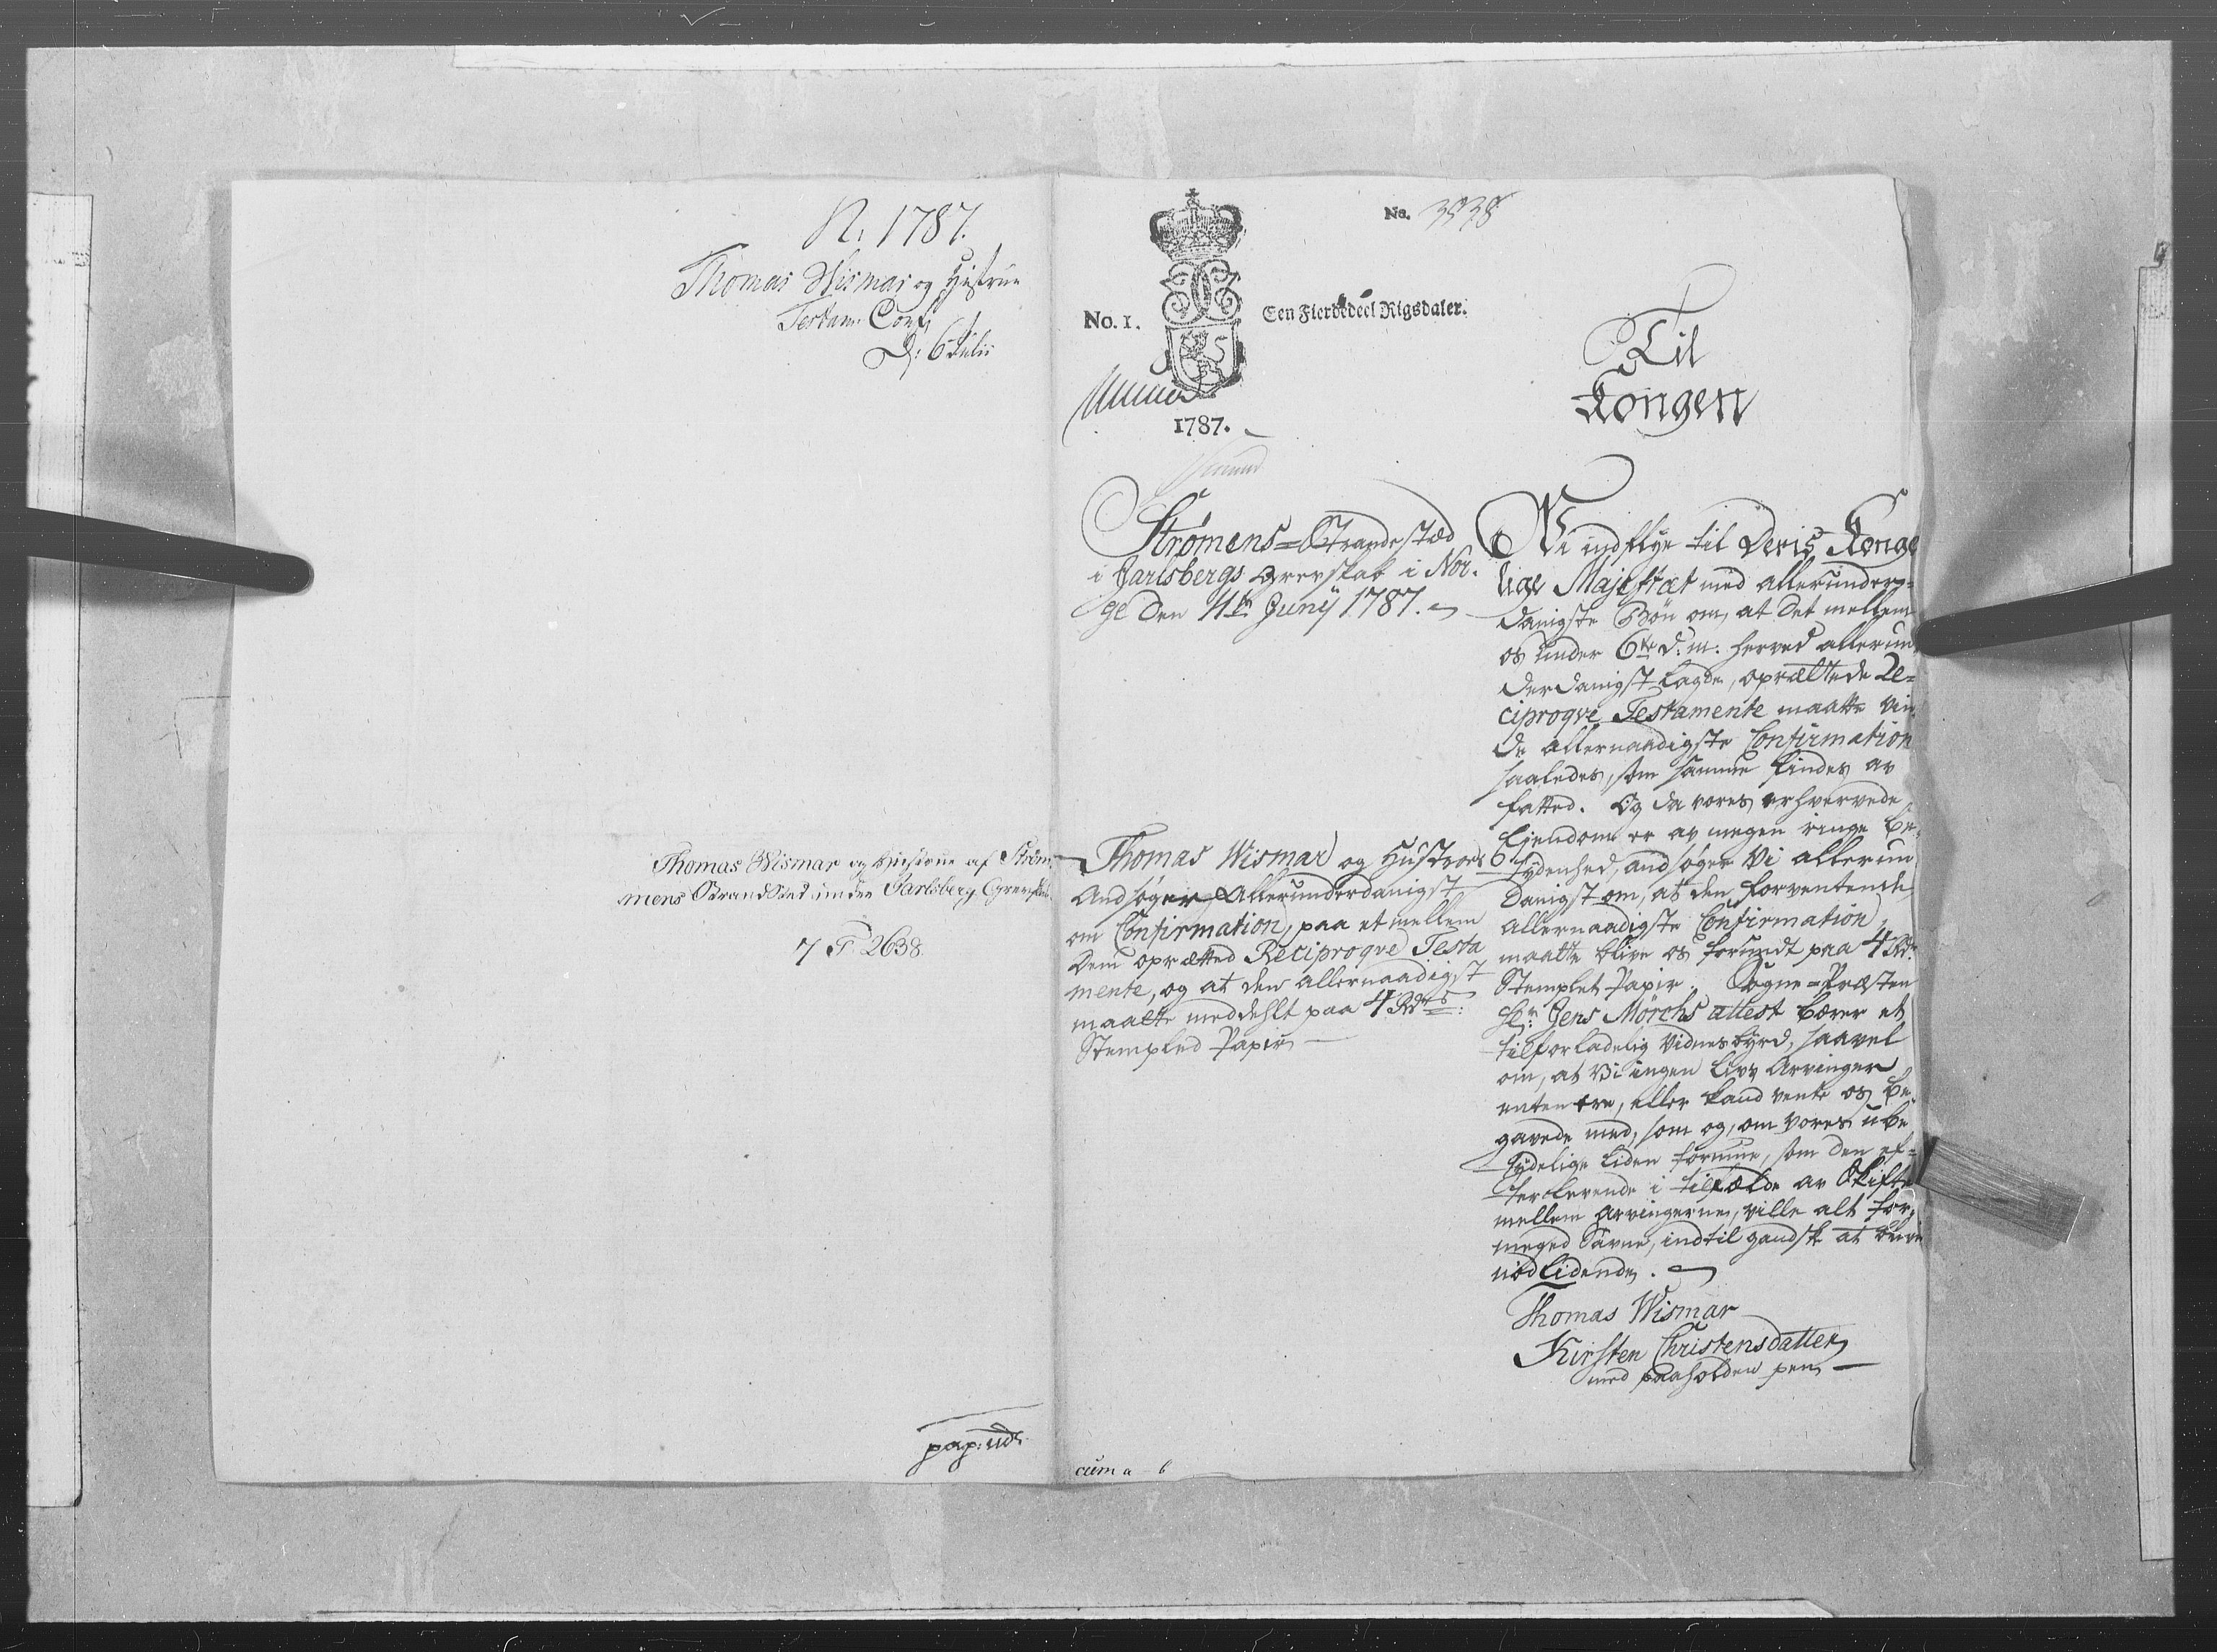 N. 1787.
Thomas Wismar og Hustrue
Testam: Conf:
D: 6 Julii
Thomas Wismar og Hustrue af Ström-
mens Strandsted under Jarlsberg Grevskab.
7 F 2638.
pap: udt
No. 3938
No. 1.
Een Fierdedeel Rigsdaler.
1787.
Strømens=Strandestæd
i Jarlsbergs Grevskab i Nor-
ge den 11te Junij 1787.
Thomas Wismar og Hustroe
Andsøger Allerunderdanigst
om Confirmation, paa et mellem
Dem oprætted Reciproqve Testa
mente, og at den allernaadigst
maatte meddehlt paa 4 Rdrs:
Stempled Papir
cum a - b
Til
Kongen
Vi indflye til Deris Konge
lige Majestæt med allerunder-
danigste Bøn om, at det mellem
os under 6te d: m: herved allerun
derdanigst lagde, oprættede Re-
ciproqve Testamente maatte vin
de allernaadigste Confirmation
saaledes, som samme findes av
fatted. Og da vores erhvervede
Ejendom er av megen ringe be-
tydenhed, andsøger Vi allerun
danigst om, at den forventende
allernaadigste Confirmation,
maatte blive os forundt paa 4 Rdr
Stemplet Papir. Sogne=Præsten
Hr: Jens Mörchs attest bærer et
tilforladelig Vidnesbyrd, saavel
om, at Vi ingen Livs Arvinger
enten ere, eller kand vente os be-
gavede med, som og, om vores ube
tydelige liden formue, som den ef-
terlevende i tilfælde av Skifte
mellem Arvingerne, ville alt for
meged Savne, indtil gandske at blive
nødlidende.
Thomas Wismar
Kirsten Christensdatter
med paaholden pen